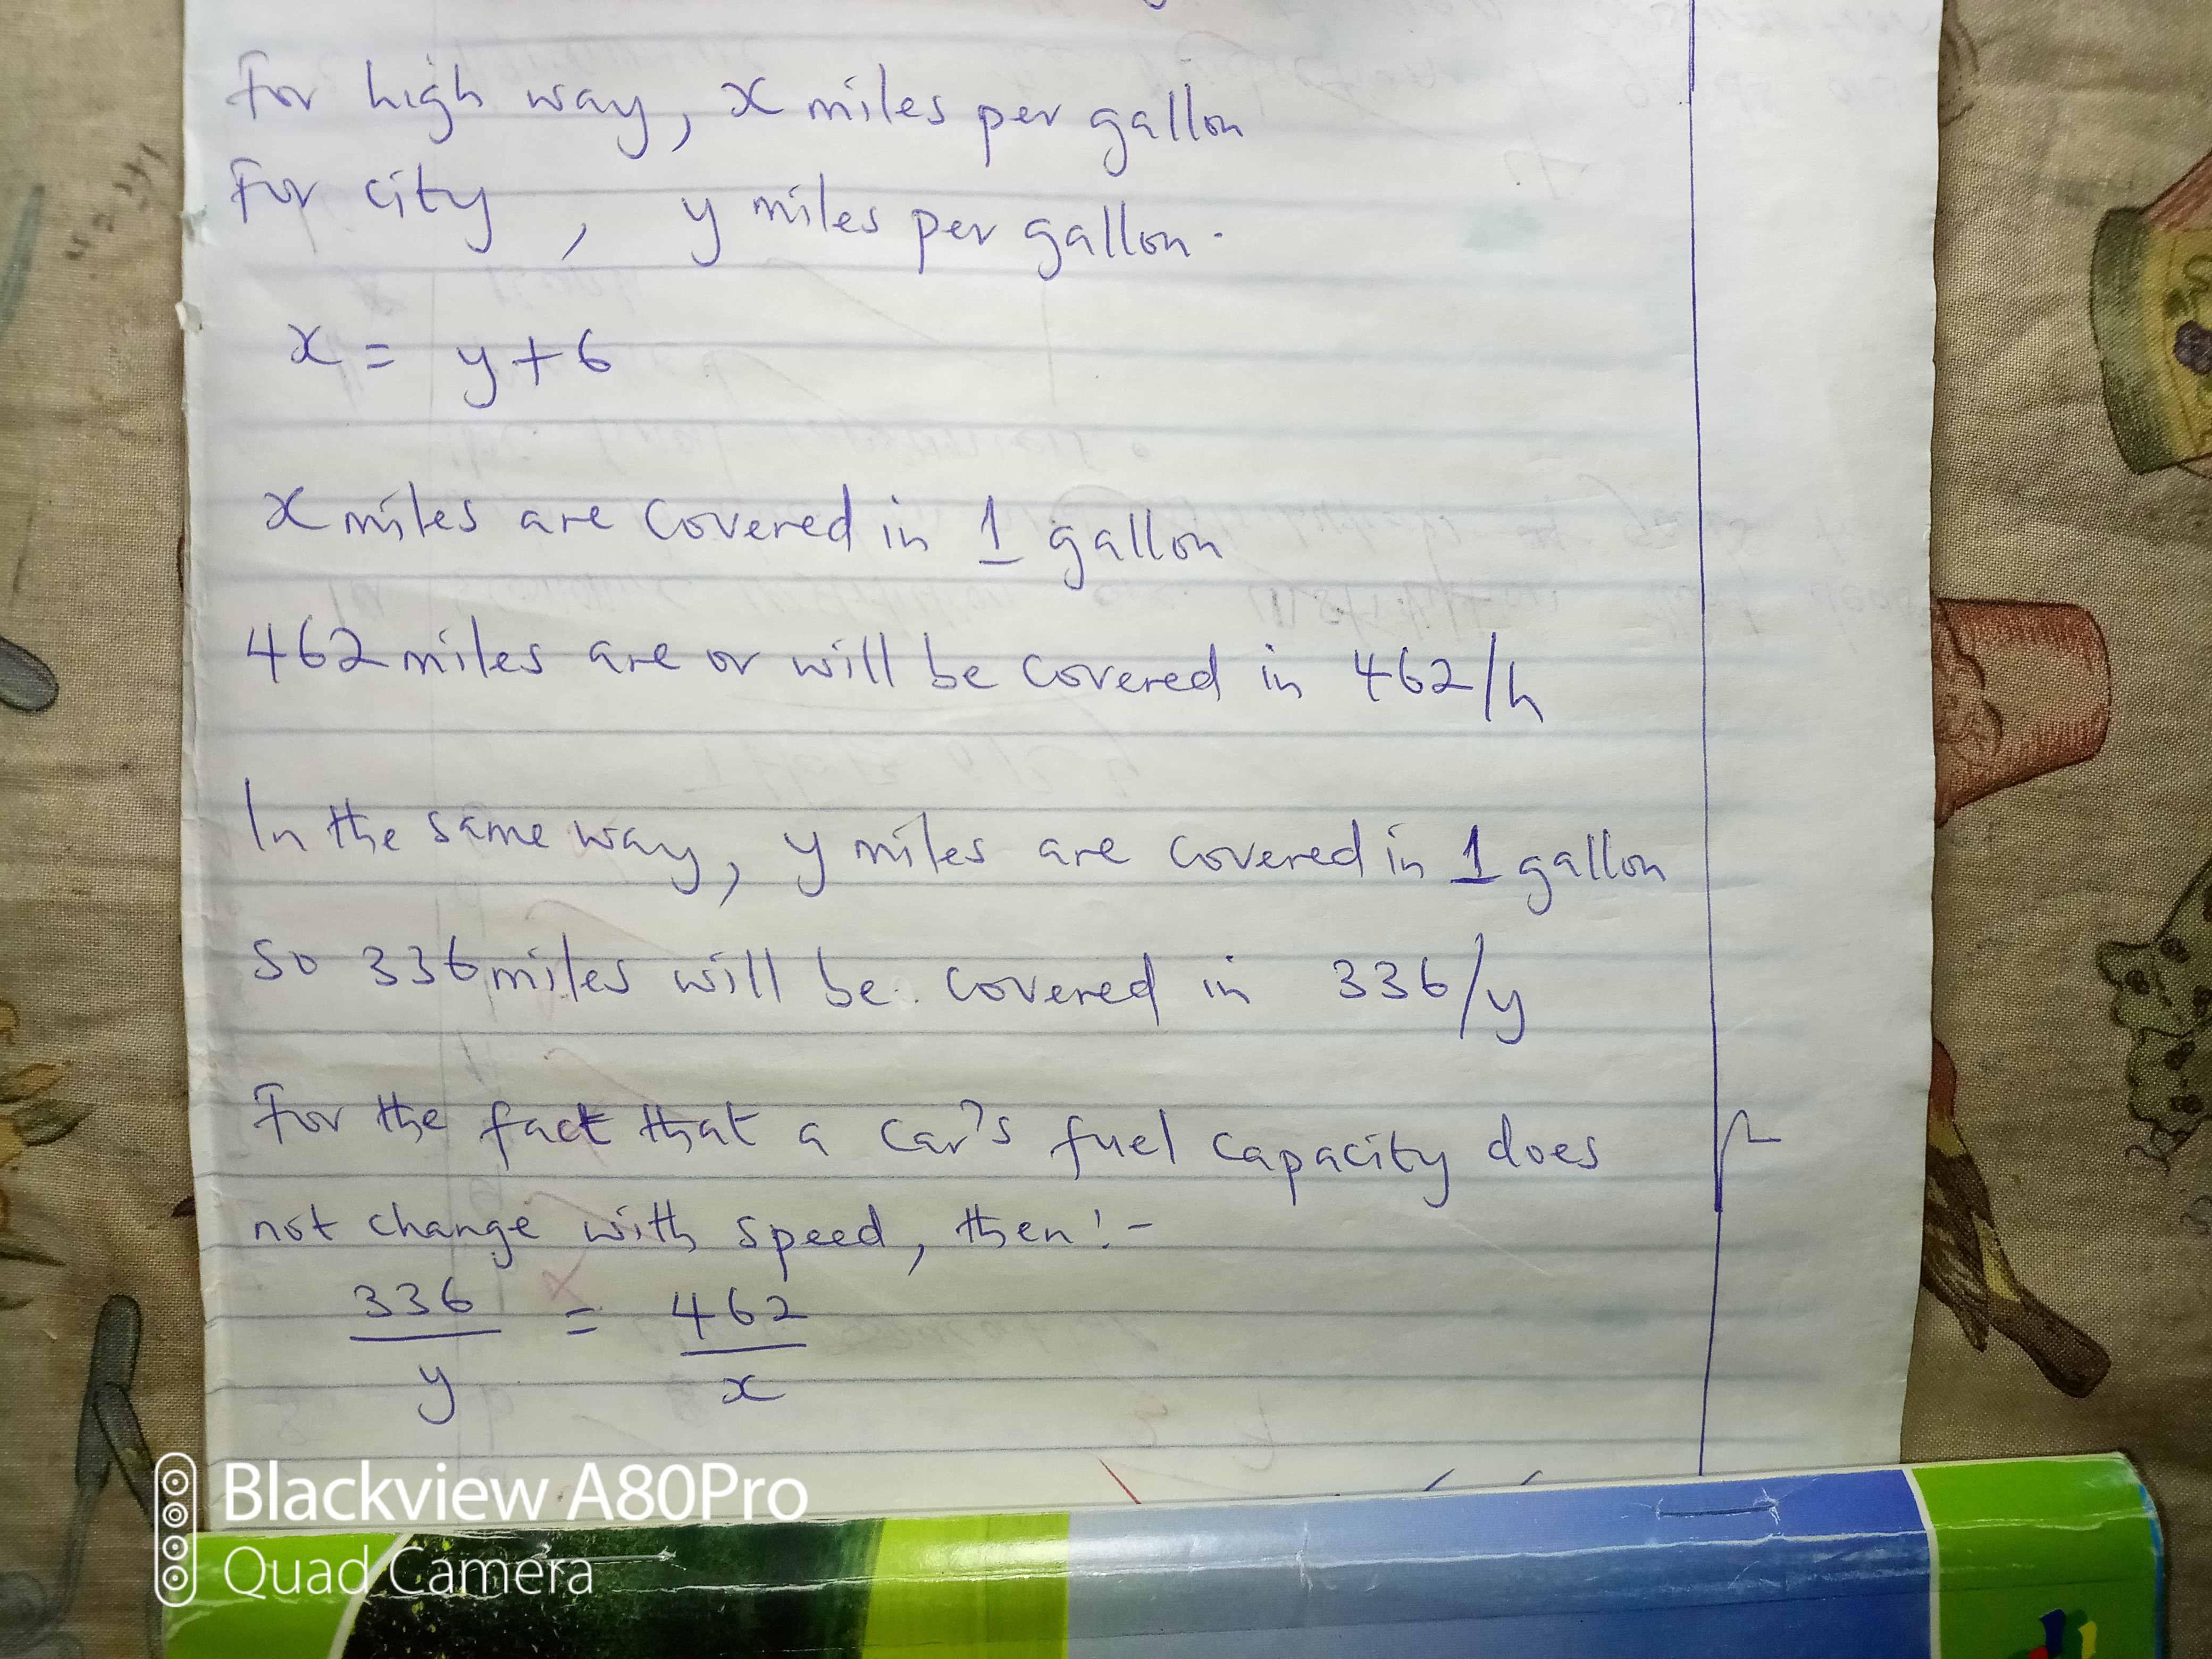 For high way, x miles per gallon
For city, y miles per gallon.
x = y + 6
x miles are covered in 1 gallon
462 miles are or will be covered in 462/h
In the same way, y miles are covered in 1 gallon
so 336 miles will be covered in 336/y
For the fact that a car's fuel capacity does
not change with speed, then:-
336/y = 462/x
Blackview A80Pro
Quad Camera